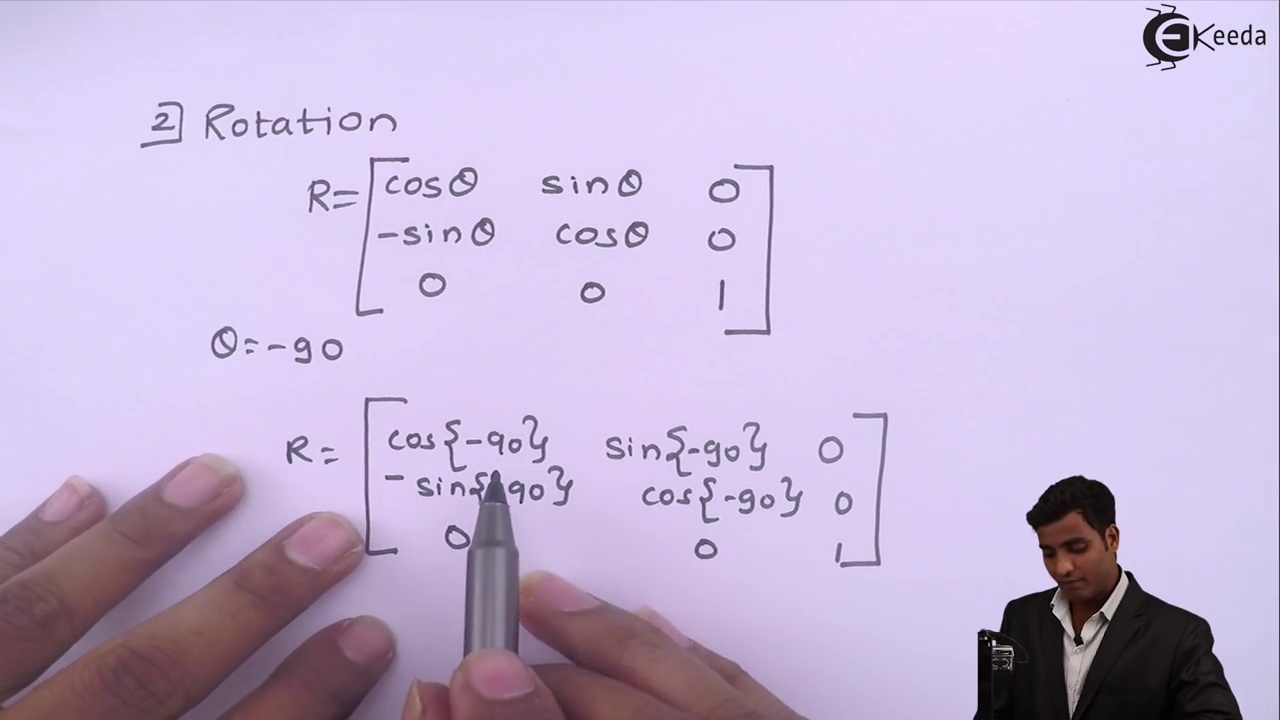 EKeeda
2] Rotation
R= [ cosθ sinθ 0
-sinθ cosθ 0
0 0 1 ]
θ=-90
R= [ cos{-90} sin{-90} 0
- sin{-90} cos{-90} 0
0 0 1 ]